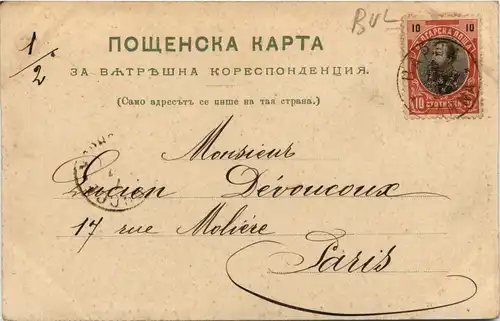 1/2
BUL
ПОЩЕНСКА КАРТА
ЗА ВѪТРѢШНА КОРЕСПОНДЕНЦИЯ.
(Само адресътъ се пише на тая страна.)
10 БЪЛГАРСКА ПОЩА 10
10 СТОТИНКИ 10
Monsieur
Lucien Dévoucoux
17 rue Molière
Paris